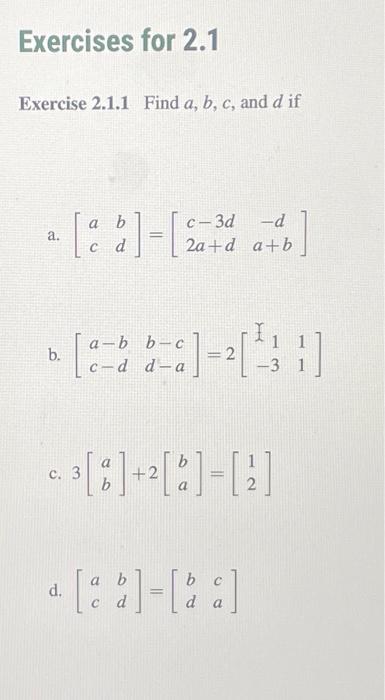 Exercises for 2.1
Exercise 2.1.1 Find a, b, c, and d if
a. [ a b ; c d ] = [ c−3d −d ; 2a+d a+b ]
b. [ a−b b−c ; c−d d−a ] = 2 [ 1 1 ; −3 1 ]
c. 3 [ a ; b ] + 2 [ b ; a ] = [ 1 ; 2 ]
d. [ a b ; c d ] = [ b c ; d a ]